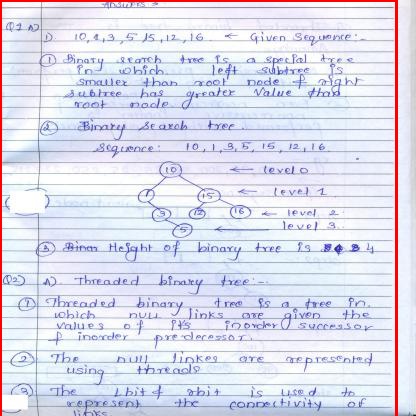 Answers :-
Q1 A)
1) 10, 1, 3, 5, 15, 12, 16. ← Given Sequence:-
① Binary search tree is a special tree
in which left subtree is
smaller than root node & right
subtree has greater value than
root node.
② Binary search tree.
Sequence: 10, 1, 3, 5, 15, 12, 16.
10 ← level 0
1 15 ← level 1
3 12 16 ← level 2
5 ← level 3
③ Height of binary tree is 4
Q2) A). Threaded binary tree:-
① Threaded binary tree is a tree in
which null links are given the
values of its inorder successor
& inorder predecessor.
② The null linkes are represented
using threads
③ The lbit & rbit is used to
represent the connectivity of
links